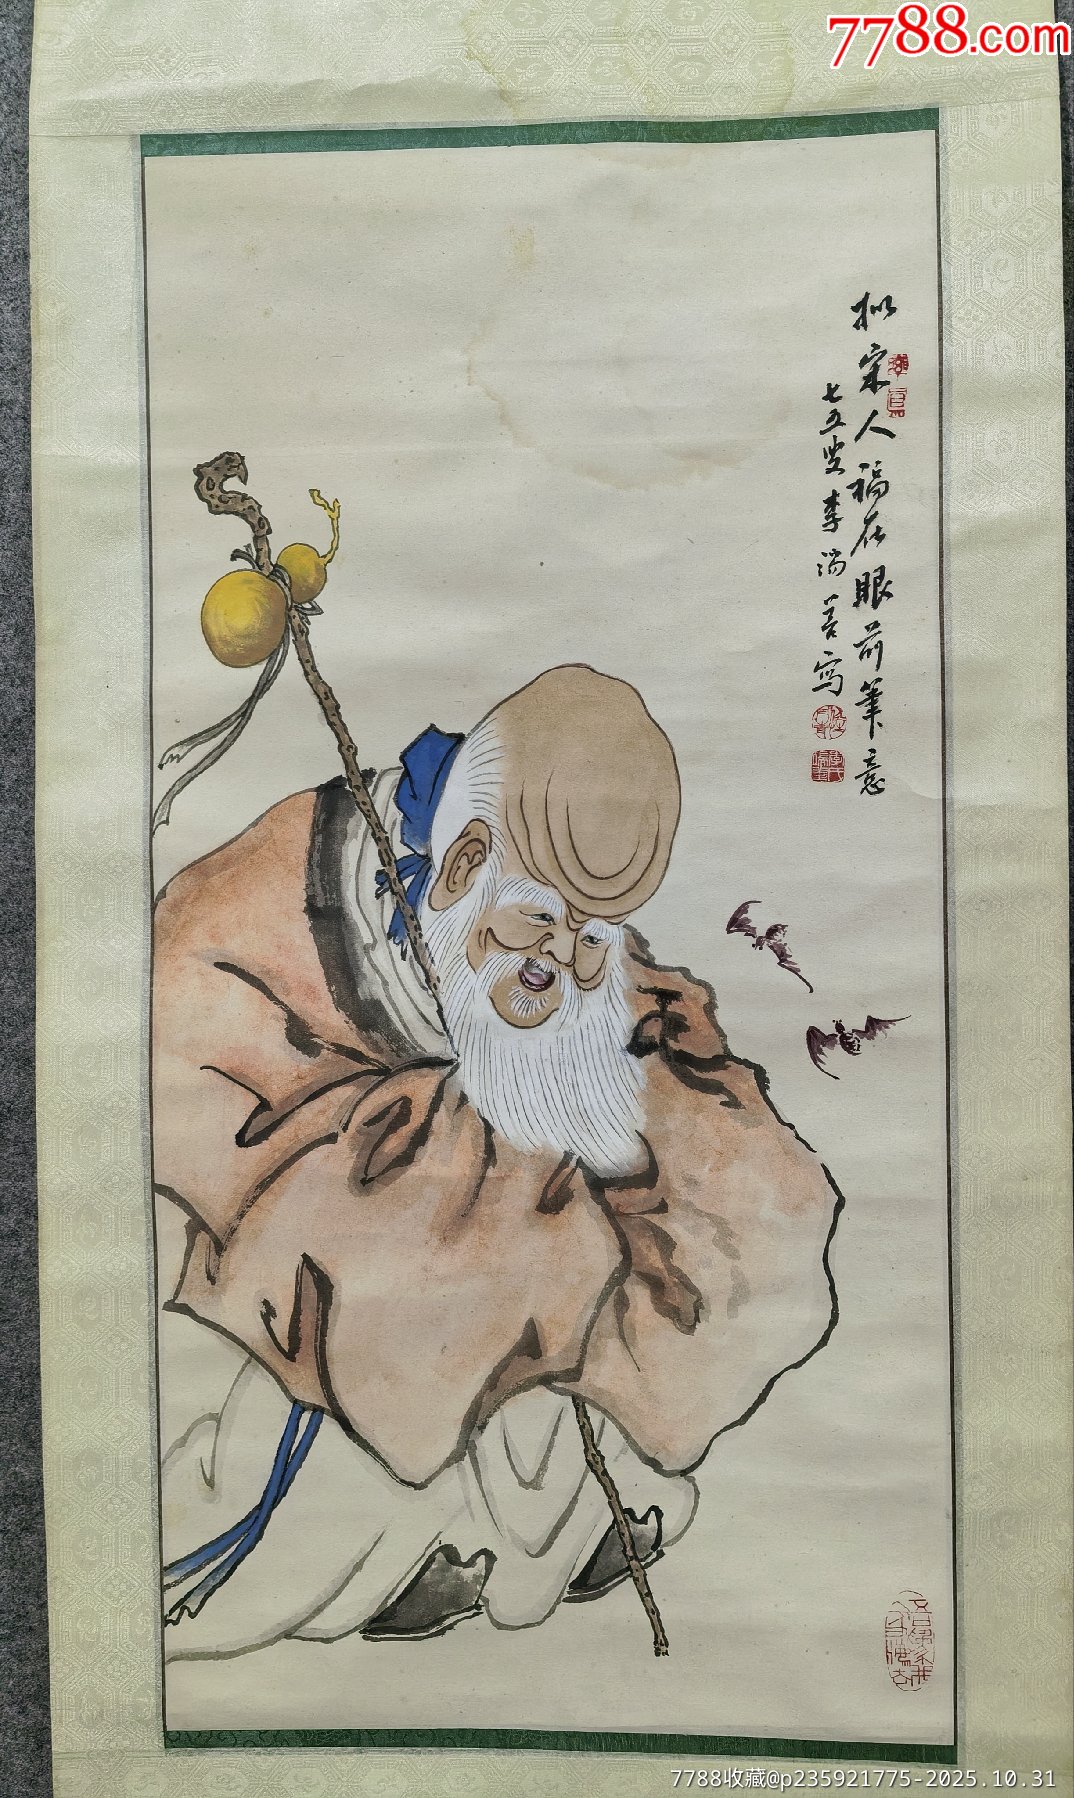 7788.com
拟宋人福在眼前筆意
七五叟李湍善寫
7788收藏@p235921775-2025.10.31